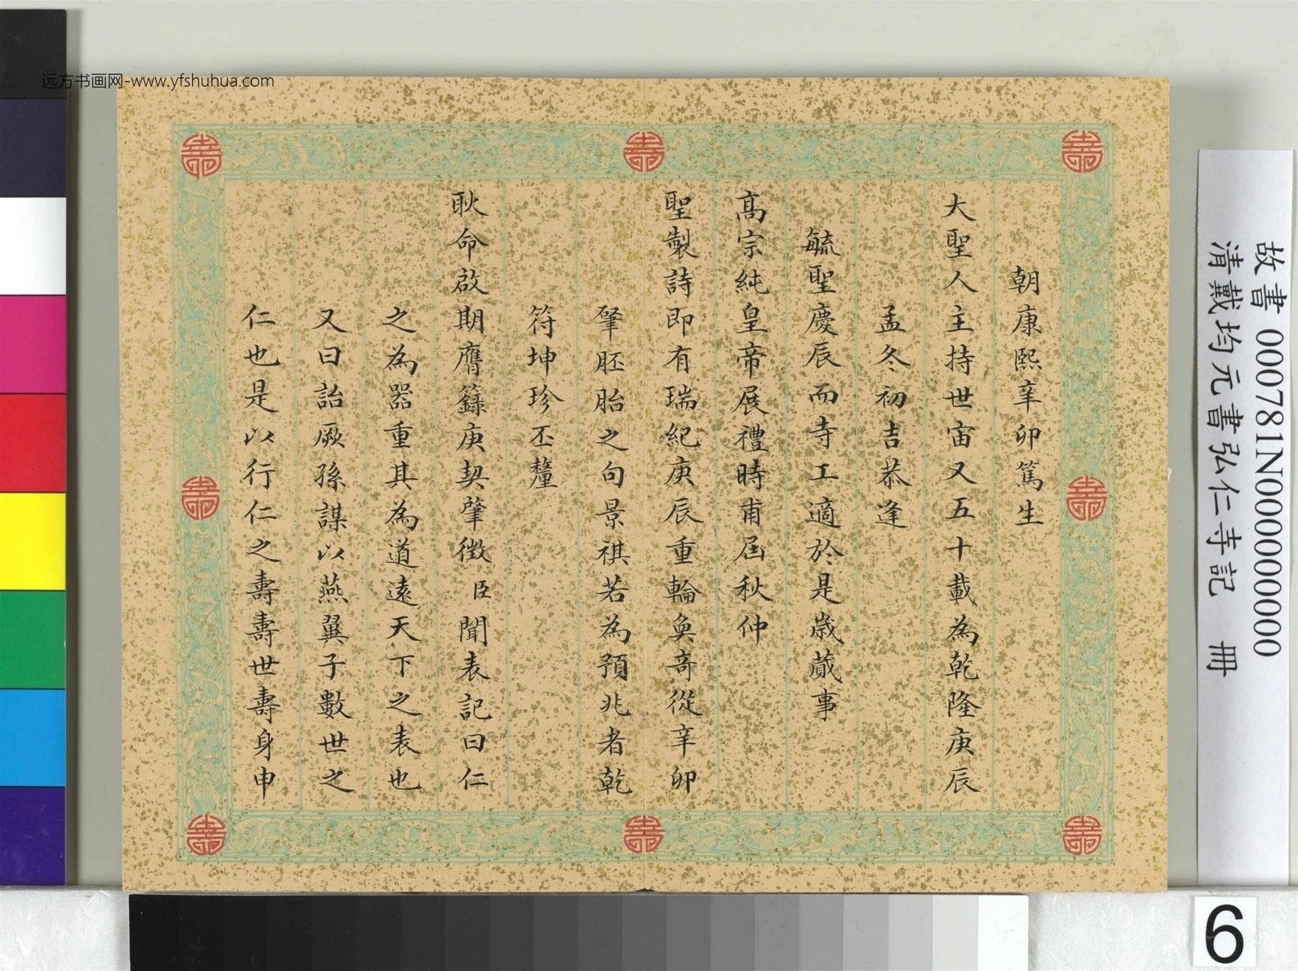 远方书画网-www.yfshuhua.com
故書 000781N000000000
清戴均元書弘仁寺記 冊
朝康熙辛卯篤生
大聖人主持世宙又五十載為乾隆庚辰
孟冬初吉恭逢
毓聖慶辰而寺工適於是歲蕆事
高宗純皇帝展禮時甫屆秋仲
聖製詩即有瑞紀庚辰重輪奐奇從辛卯
肇胚胎之句景祺若為預兆者乾
符坤珍丕釐
耿命啟期膺籙庚契肇徵臣聞表記曰仁
之為器重其為道遠天下之表也
又曰詒厥孫謀以燕翼子數世之
仁也是以行仁之壽壽世壽身申
6